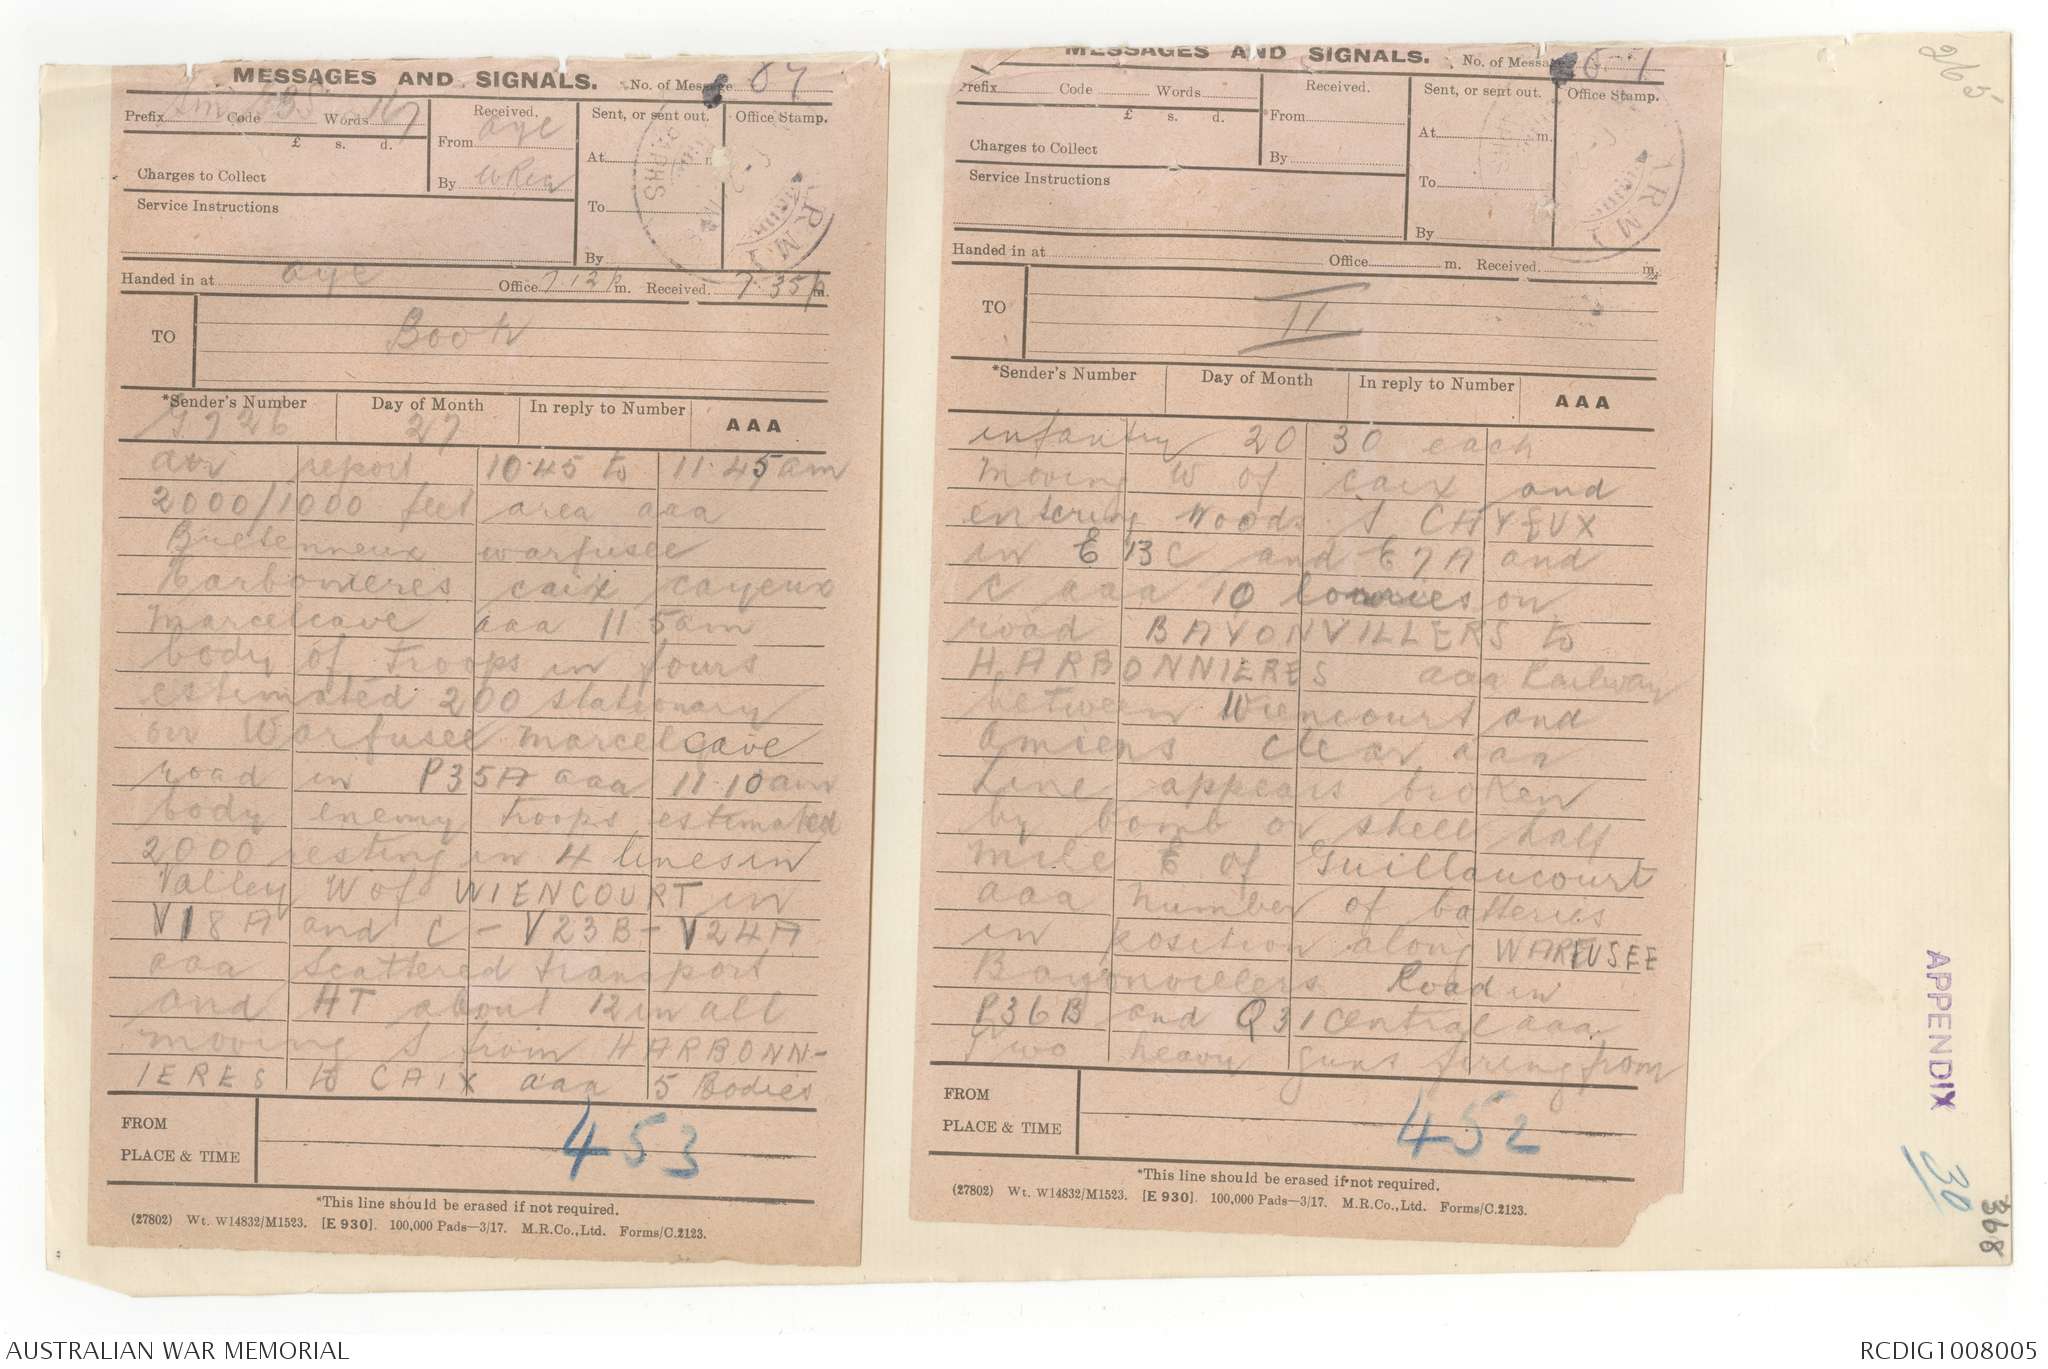 MESSAGES AND SIGNALS. No. of Message
Prefix Sm Code Words 167
£ s. d.
Charges to Collect
Service Instructions
Received.
From aye
By
Sent, or sent out.
At m.
To
By
Office Stamp.
Handed in at aye Office 7.12 p m. Received 7.35 p m.
TO
Book
*Sender's Number Day of Month In reply to Number AAA
G726 27
air report 10.45 to 11.45 am
2000/1000 feet area aaa
warfusee
harbonieres caix cayeux
marcelcave aaa 11 5 am
body of troops in fours
estimated 200 stationary
on Warfusee marcelcave
road in P35A aaa 11.10 am
body enemy troops estimated
2000 resting in 4 lines in
Valley W of WIENCOURT in
V18A and C - V23B - V24A
aaa scattered transport
and HT about 12 in all
moving S from HARBONN-
IERES to CAIX aaa 5 Bodies
FROM
PLACE & TIME
453
*This line should be erased if not required.
(27802) Wt. W14832/M1523. [E 930]. 100,000 Pads—3/17. M.R.Co.,Ltd. Forms/C.2123.
MESSAGES AND SIGNALS. No. of Message
Prefix Code Words
£ s. d.
Charges to Collect
Service Instructions
Received.
From
By
Sent, or sent out.
At m.
To
By
Office Stamp.
Handed in at Office m. Received m.
TO
II
*Sender's Number Day of Month In reply to Number AAA
infantry 20 30 each
moving W of caix and
entering woods S CAYEUX
in E13C and E7A and
C aaa 10 lorries on
road BAYONVILLERS to
HARBONNIERES aaa Railway
between Wiencourt and
amiens clear aaa
Line appears broken
by bomb or shell half
mile E of Guillaucourt
aaa Number of batteries
in position along WARFUSEE
Bayonvillers Road in
P36B and Q31 central aaa
Two heavy guns firing from
FROM
PLACE & TIME
452
*This line should be erased if not required.
(27802) Wt. W14832/M1523. [E 930]. 100,000 Pads—3/17. M.R.Co.,Ltd. Forms/C.2123.
265
APPENDIX 30
368
AUSTRALIAN WAR MEMORIAL
RCDIG1008005